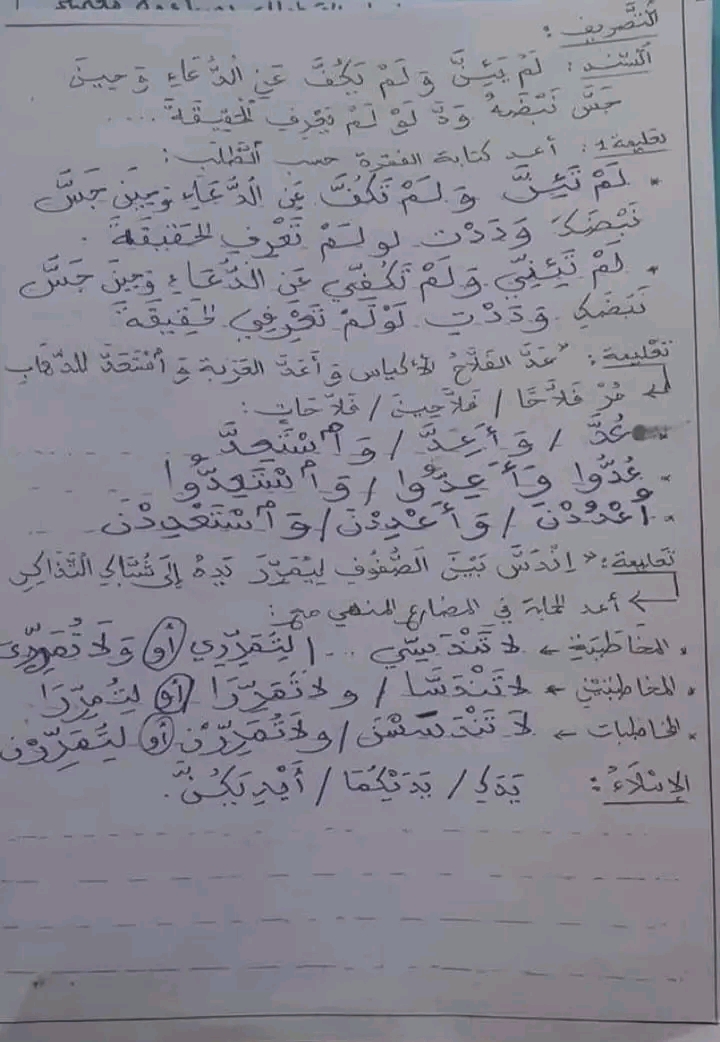 التَّصْرِيف:
السَّند: لَمْ يَئِنَّ وَ لَمْ يَكُفَّ عَنِ الدُّعَاءِ وَ حِينَ
جَسَّ نَبْضَهُ وَدَّ لَوْ لَمْ يَعْرِفِ الْحَقِيقَةَ....
تعليمة 1: أعد كتابة الفقرة حسب الطَّلب:
• لَمْ تَئِنَّ وَ لَمْ تَكُفَّ عَنِ الدُّعَاءِ وَ حِينَ جَسَّ
نَبْضَكَ وَدَدْتَ لو لَمْ تَعْرِفِ الحَقِيقَةَ.
• لَمْ تَئِنِّي وَ لَمْ تَكُفِّي عَنِ الدُّعَاءِ وَ حِينَ جَسَّ
نَبْضَكِ وَدَدْتِ لَوْ لَمْ تَعْرِفِي الحَقِيقَةَ
تعليمة: "عَدَّ الفَلَّاحُ الأكياس وَ أَعَدَّ العَرَبَة وَ اسْتَعَدَّ للذّهابِ
مُرْ فَلَّاحًا / فَلَّاحِينَ / فَلَّاحَاتٍ:
• عُدَّ / وَ أَعِدَّ / وَ اسْتَعِدَّ
• عُدُّوا وَ أَعِدُّوا / وَ اسْتَعِدُّوا
• اُعْدُدْنَ / وَ أَعْدِدْنَ / وَ اسْتَعْدِدْنَ
تعليمة: "اِنْدَسَّ بَيْنَ الصُّفُوفِ لِيُمَرِّرَ يَدَهُ إِلَى شُبَّاكِ التَّذَاكِرِ
أعد الكتابة في المضارع المنهي مع:
• المخَاطَبَةِ ← لا تَنْدَسِّي ... / لِتُمَرِّرِي أو وَ لَا تُمَرِّرِي
• المخاطبتين ← لا تَنْدَسَّا / و لا تُمَرِّرَا / أو لِتُمَرِّرَا
• المخاطبات ← لَا تَنْدَسِسْنَ / وَ لَا تُمَرِّرْنَ أو لِتُمَرِّرْنَ
الإملاءُ: يَدَكِ / يَدَيْكُمَا / أَيْدِيَكُنَّ.